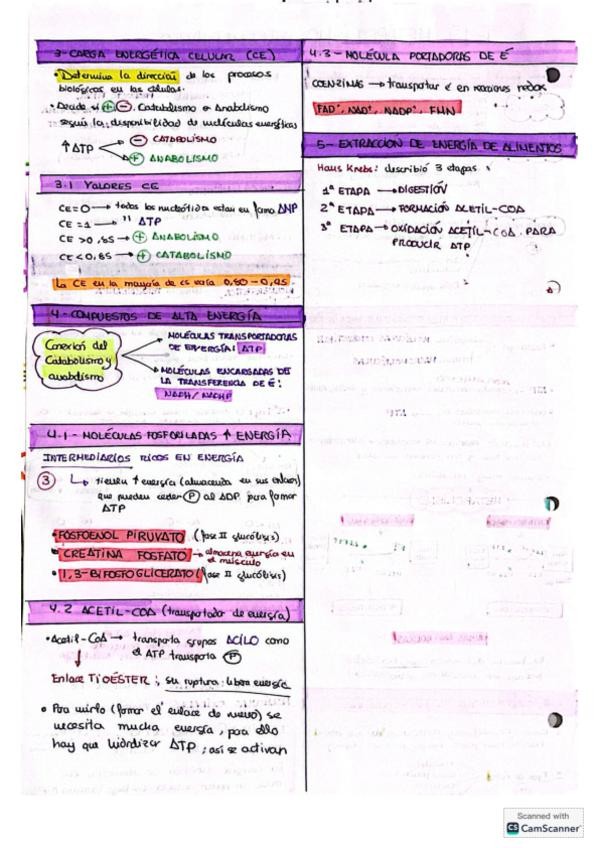 3-CARGA ENERGÉTICA CELULAR (CE)
• Determina la dirección de los procesos
biológicos en las células.
• Decide si + - . Catabolismo o Anabolismo
según la disponibilidad de moléculas energéticas
↑ ATP → - CATABOLISMO
→ + ANABOLISMO
3.1 VALORES CE
CE=0 → todos los nucleótidos están en forma AMP
CE=1 → " ATP
CE > 0,85 → + ANABOLISMO
CE < 0,85 → + CATABOLISMO
La CE en la mayoría de cs varía 0,80 - 0,95.
4- COMPUESTOS DE ALTA ENERGÍA
Conexión del
Catabolismo y
anabolismo
→ MOLÉCULAS TRANSPORTADORAS
DE ENERGÍA: ATP
→ MOLÉCULAS ENCARGADAS DE
LA TRANSFERENCIA DE É:
NADH/NADPH
4.1- MOLÉCULAS FOSFORILADAS ↑ ENERGÍA
INTERMEDIARIOS RICOS EN ENERGÍA
3 ↳ tienen ↑ energía (almacenada en sus enlaces)
que pueden ceder P al ADP para formar
ATP
• FOSFOENOL PIRUVATO (fase II glucólisis)
• CREATINA FOSFATO → almacena energía en
el músculo
• 1,3-BIFOSFOGLICERATO (fase II glucólisis)
4.2 ACETIL-COA (transportador de energía)
• Acetil-CoA → transporta grupos ACILO como
el ATP transporta P
↓
Enlace TIOÉSTER ; su ruptura libera energía
• Para unirlo (formar el enlace de nuevo) se
necesita mucha energía, para ello
hay que hidrolizar ATP ; así se activan
4.3- MOLÉCULA PORTADORAS DE É
COENZIMAS → transportar é en reacciones redox
FAD⁺, NAD⁺, NADP⁺, FMN
5- EXTRACCIÓN DE ENERGÍA DE ALIMENTOS
Hans Krebs: describió 3 etapas :
1ª ETAPA → DIGESTIÓN
2ª ETAPA → FORMACIÓN ACETIL-COA
3ª ETAPA → OXIDACIÓN ACETIL-COA PARA
PRODUCIR ATP
Scanned with
CS CamScanner